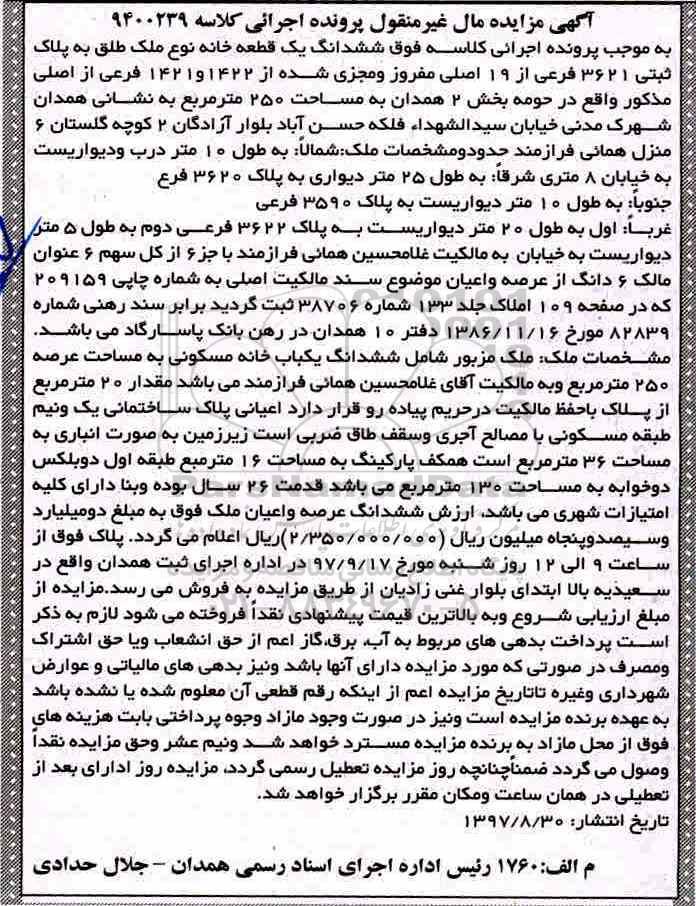 آگهی مزایده مال غیرمنقول پرونده اجرائی کلاسه ۹۴۰۰۲۳۹
به موجب پرونده اجرائی کلاسه فوق ششدانگ یک قطعه خانه نوع ملک طلق به پلاک
ثبتی ۳۶۲۱ فرعی از ۱۹ اصلی مفروز ومجزی شده از ۱۴۲۲و۱۴۲۱ فرعی از اصلی
مذکور واقع در حومه بخش ۲ همدان به مساحت ۲۵۰ مترمربع به نشانی همدان
شهرک مدنی خیابان سیدالشهداء فلکه حسن آباد بلوار آزادگان ۲ کوچه گلستان ۶
منزل همائی فرازمند حدودومشخصات ملک:شمالاً: به طول ۱۰ متر درب ودیواریست
به خیابان ۸ متری شرقاً: به طول ۲۵ متر دیواری به پلاک ۳۶۲۰ فرع
جنوباً: به طول ۱۰ متر دیواریست به پلاک ۳۵۹۰ فرعی
غرباً: اول به طول ۲۰ متر دیواریست به پلاک ۳۶۲۲ فرعی دوم به طول ۵ متر
دیواریست به خیابان به مالکیت غلامحسین همائی فرازمند با جز۶ از کل سهم ۶ عنوان
مالک ۶ دانگ از عرصه واعیان موضوع سند مالکیت اصلی به شماره چاپی ۲۰۹۱۵۹
که در صفحه ۱۰۹ املاک جلد ۱۳۳ شماره ۳۸۷۰۶ ثبت گردید برابر سند رهنی شماره
۸۲۸۳۹ مورخ ۱۳۸۶/۱۱/۱۶ دفتر ۱۰ همدان در رهن بانک پاسارگاد می باشد.
مشخصات ملک: ملک مزبور شامل ششدانگ یکباب خانه مسکونی به مساحت عرصه
۲۵۰ مترمربع وبه مالکیت آقای غلامحسین همائی فرازمند می باشد مقدار ۲۰ مترمربع
از پلاک باحفظ مالکیت درحریم پیاده رو قرار دارد اعیانی پلاک ساختمانی یک ونیم
طبقه مسکونی با مصالح آجری وسقف طاق ضربی است زیرزمین به صورت انباری به
مساحت ۳۶ مترمربع است همکف پارکینگ به مساحت ۱۶ مترمبع طبقه اول دوبلکس
دوخوابه به مساحت ۱۳۰ مترمربع می باشد قدمت ۲۶ سال بوده وبنا دارای کلیه
امتیازات شهری می باشد، ارزش ششدانگ عرصه واعیان ملک فوق به مبلغ دومیلیارد
وسیصدوپنجاه میلیون ریال (۲/۳۵۰/۰۰۰/۰۰۰)ریال اعلام می گردد. پلاک فوق از
ساعت ۹ الی ۱۲ روز شنبه مورخ ۹۷/۹/۱۷ در اداره اجرای ثبت همدان واقع در
سعیدیه بالا ابتدای بلوار غنی زادیان از طریق مزایده به فروش می رسد.مزایده از
مبلغ ارزیابی شروع وبه بالاترین قیمت پیشنهادی نقداً فروخته می شود لازم به ذکر
است پرداخت بدهی های مربوط به آب، برق،گاز اعم از حق انشعاب ویا حق اشتراک
ومصرف در صورتی که مورد مزایده دارای آنها باشد ونیز بدهی های مالیاتی و عوارض
شهرداری وغیره تاتاریخ مزایده اعم از اینکه رقم قطعی آن معلوم شده یا نشده باشد
به عهده برنده مزایده است ونیز در صورت وجود مازاد وجوه پرداختی بابت هزینه های
فوق از محل مازاد به برنده مزایده مسترد خواهد شد ونیم عشر وحق مزایده نقداً
وصول می گردد ضمناًچنانچه روز مزایده تعطیل رسمی گردد، مزایده روز ادارای بعد از
تعطیلی در همان ساعت ومکان مقرر برگزار خواهد شد.
تاریخ انتشار: ۱۳۹۷/۸/۳۰
م الف:۱۷۶۰ رئیس اداره اجرای اسناد رسمی همدان - جلال حدادی